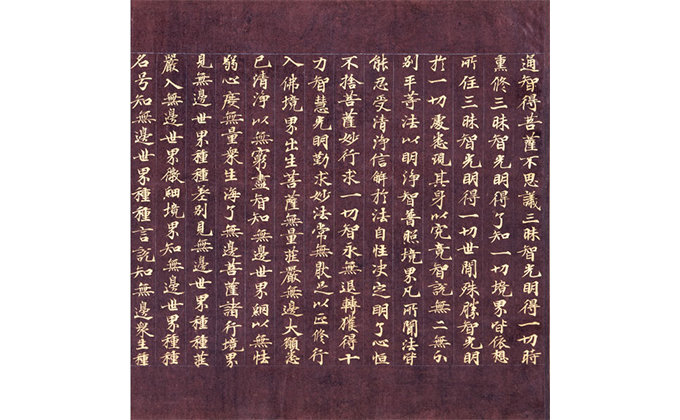 通智得菩薩不思議三昧智光明得一切時
熏修三昧智光明得了知一切境界皆依想
所住三昧智光明得一切世間殊勝智光明
於一切處悉現其身以究竟智說無二無分
別平等法以明淨智普照境界凡所聞法皆
能忍受清淨信解於法自性決定明了心恒
不捨菩薩妙行求一切智永無退轉獲得十
力智慧光明勤求妙法常無厭足以正修行
入佛境界出生菩薩無量莊嚴無邊大願悉
已清淨以無窮盡智知無邊世界網以無怯
弱心度無量衆生海了無邊菩薩諸行境界
見無邊世界種種差別見無邊世界種種莊
嚴入無邊世界微細境界知無邊世界種種
名号知無邊世界種種言說知無邊衆生種